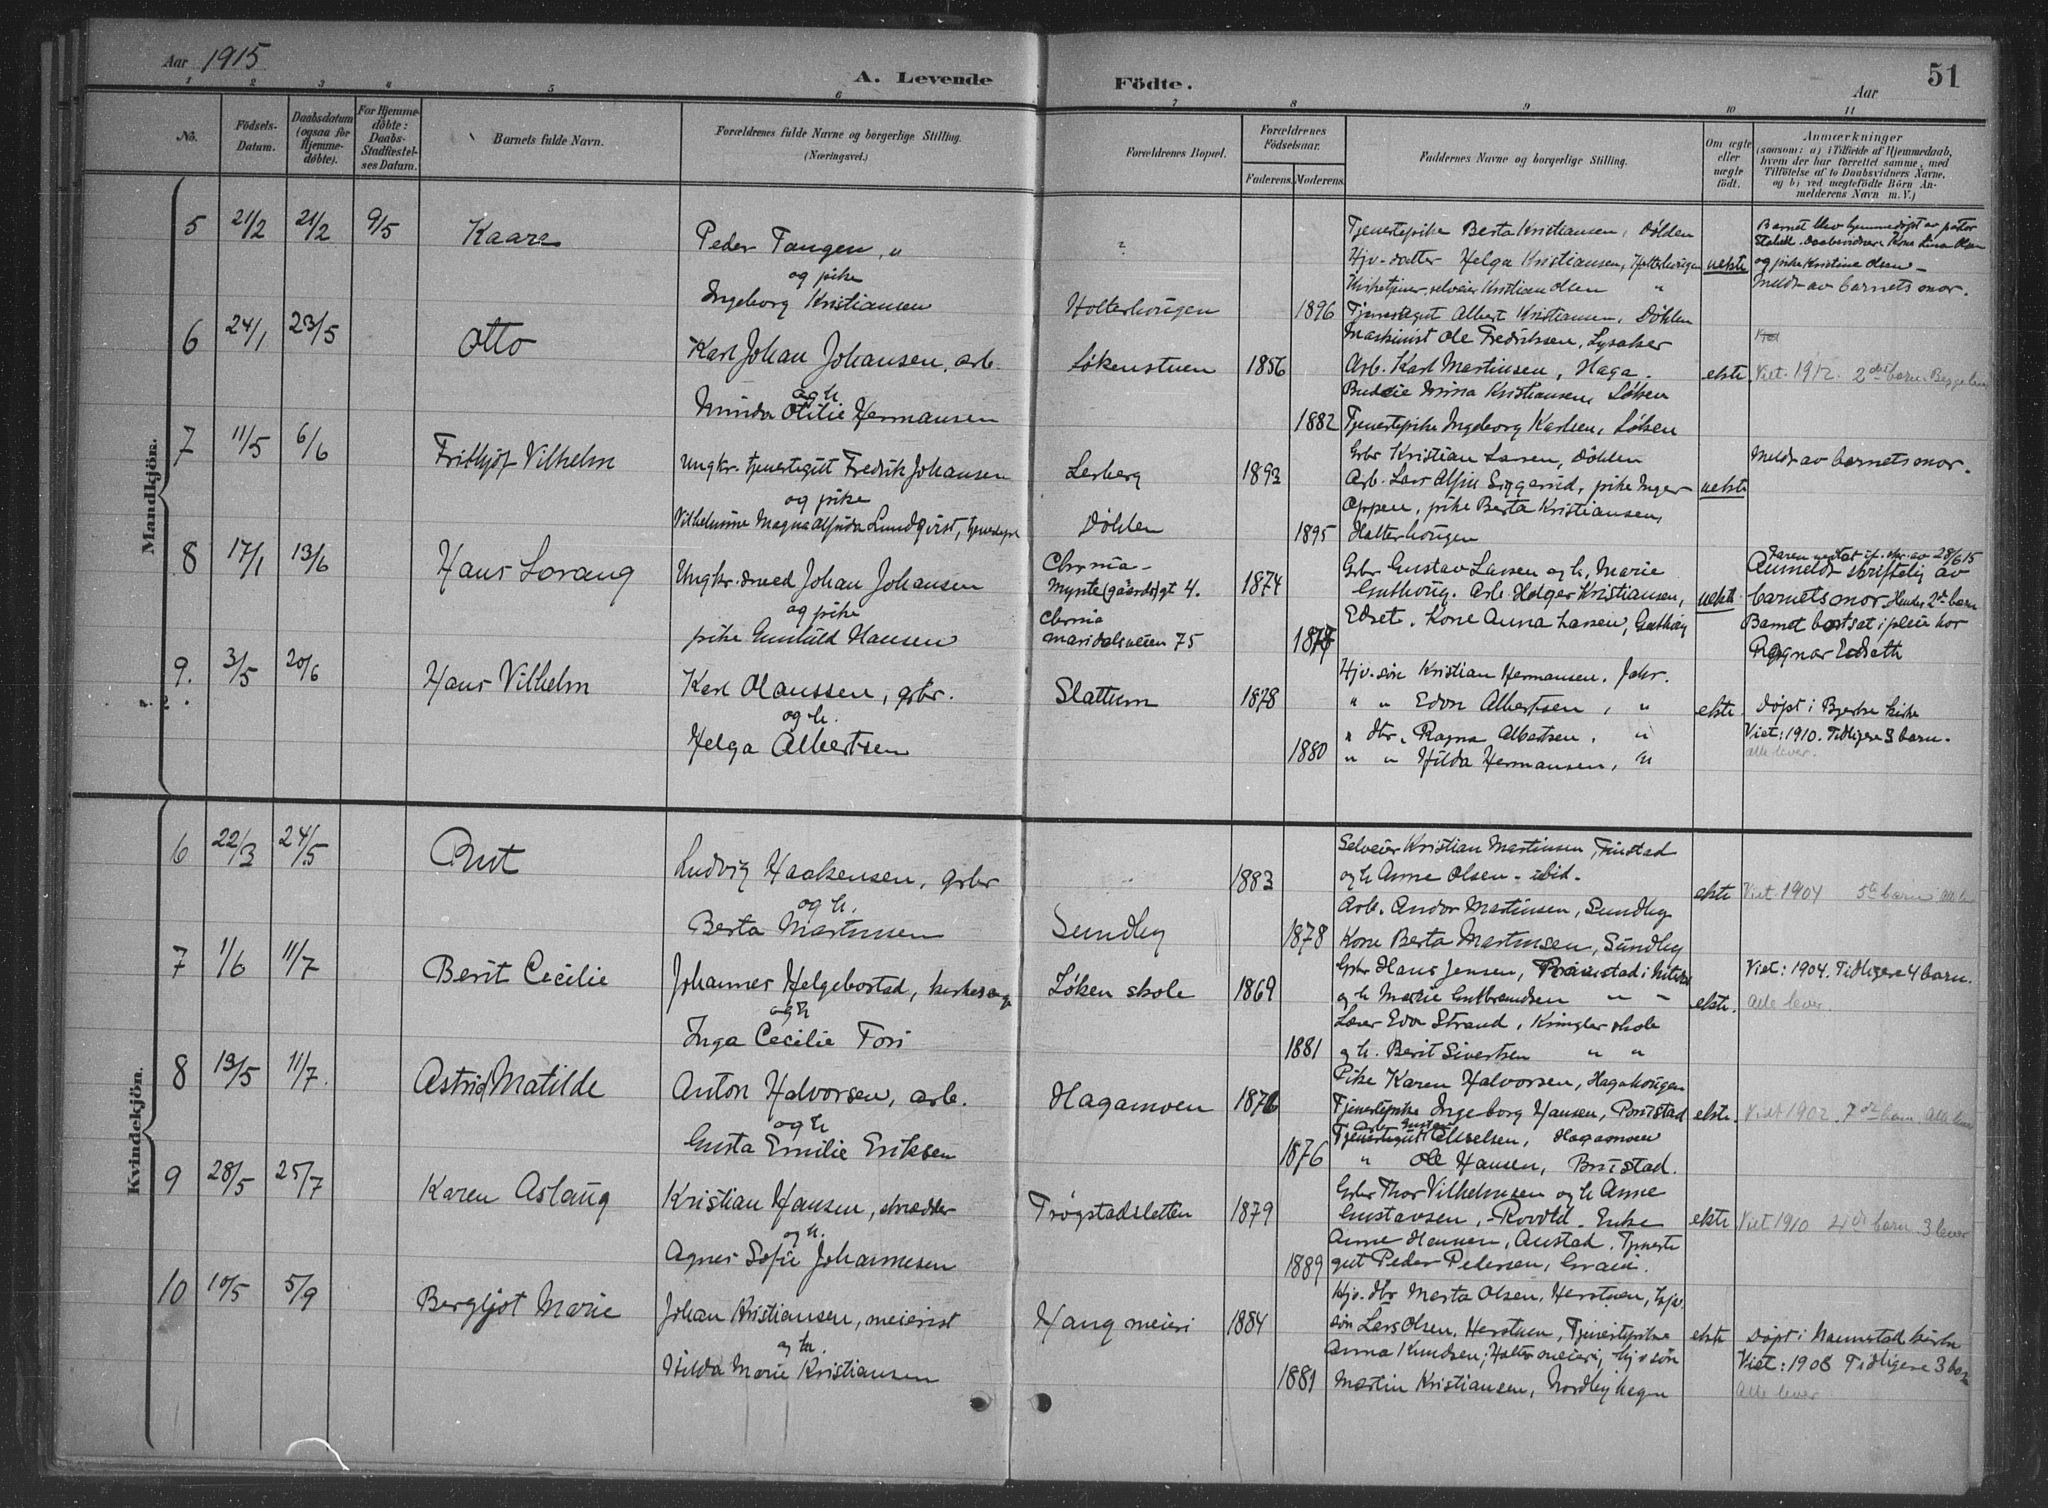 Aar 1915
A. Levende Födte.
Aar
51
1 2 3 4 5 6 7 8 9 10 11
No.
Födsels-Datum.
Daabsdatum (ogsaa for Hjemmedöbte).
For Hjemmedöbte: Daabs-Stadfæstelses Datum.
Barnets fulde Navn.
Forældrenes fulde Navne og borgerlige Stilling.
(Næringsvei.)
Forældrenes Bopæl.
Forældrenes Födselsaar.
Faderens. Moderens.
Faddernes Navne og borgerlige Stilling.
Om ægte eller uægte födt.
Anmærkninger
(saasom: a) i Tilfælde af Hjemmedaab, hvem der har forrettet samme, med Tilföielse af to Daabsvidners Navne. og b) ved uægtefödte Börn Anmelderens Navn m. V.)
Mandkjön.
5 21/2 21/2 9/5 Kaare
Peder Tangen, "
og pike
Ingeborg Kristiansen
Holterhougen
1896
Tjenestepike Berta Kristiansen, Döhlen
Hjv-datter Helga Kristiansen, Holterhougen
Kirketjener, selveier Kristian Olsen "
Tjenestegut Albert Kristiansen, Döhlen
uekte
Barnet blev hjemmedöpt av pator
Daabsvidner: Kone Lina Olsen
og pike Kristine Olsen -
Meldt av barnets mor.
6 24/1 23/5 Otto
Karl Johan Johansen, arb.
og h.
Minda Otilie Hermansen
Løkenstuen
1856
1882
Maskinist Ole Fredriksen, Lysaker
Arb. Karl Martinsen, Haga.
Budeie Mina Kristiansen, Løken
Tjenestepike Ingeborg Karlsen, Løken
ekte
Viet 1912. 2det barn. Begge lever
7 11/5 6/6 Frithjof Vilhelm
Ungkr. tjenestegutt Fredrik Johansen
og pike
Vilhelmine Magna Alfrida Lundqvist, tjenestepi
Lerberg
Döhlen
1893
1895
Grbr Kristian Larsen, Döhlen
Arb. Lars Alfin Siggerud, pike Inger
Oppen, pike Berta Kristiansen,
Holterhougen
uekte
Meldt av barnets mor.
8 17/1 13/6 Hans Lorang
Ungkr. smed Johan Johansen
og pike
pike Gunhild Hansen
Chrnia-
Mynte(gaards)gt 4.
Chrnia
Maridalsveien 75
1874
1877
Grbr Gustav Larsen og h, Marie
Guthoug. Arb Holger Kristiansen,
Edset. Kone Anna Larsen, Guthoug
uekte
28/6 15
Anmeldt skriftelig av
barnets mor Hendes 2det barn
Barnet bortsat i pleie hos
Ragnar Edseth
9. 3/5 20/6 Hans Vilhelm
Karl Olaussen, grbr.
og h.
Helga Albertsen
Slattum
1878
1880
Hjv-søn Kristian Hermansen. Jahr.
" " Edvn Albertsen, "
" dtr. Ragna Albertsen. "
" " Hilda Hermansen, "
ekte
Döpt i Bjerke kirke
Viet: 1910. Tidligere 3 barn.
alle lever.
Kvindekjön.
6 22/3 24/5 Rut
Ludvig Haakensen, grbr
og h.
Berta Martinsen
Sundby
1883
1878
Selveier Kristian Martinsen, Finstad
og h Anne Olsen - ibid-
Arb. Andor Martinsen, Sundby
Kone Berta Martinsen, Sundby
ekte
Viet 1904 5te barn
7 1/6 11/7 Berit Cecilie
Johannes Helgebostad, kirkesange
og h
Inga Cecilie Tosi
Løken skole
1869
1881
Grbr Hans Jensen,
og h Marie Gulbrandsen " "
Lærer Edvr Strand, Kringler skole
og h. Berit Sivertsen " "
ekte.
Viet: 1904. Tidligere 4 barn.
Alle lever.
8 13/5 11/7. Astrid Matilde
Anton Halvorsen, arb.
og h
Gusta Emilie Eriksen
Hagamoen
1876
1876
Pike Karen Halvorsen, Hagahougen
Tjenestepike Ingeborg Hansen,
Arb Gustav
Tjenestegut Akselsen, Hagamoen
" Ole Hansen,
ekte.
Viet 1902. 7de barn. Alle lever
9 28/5 25/7 Karen Aslaug
Kristian Hansen, skrædder
og h.
Agnes Sofie Johannesen
Trøgstadsletten
1879
1889
Grbr Thor Vilhelmsen og h Anne
Gustavsen, Rovold. Enke
Anne Hansen, Austad. Tjeneste
gut Peder Pedersen,
ekte
Viet 1910 4de barn. 3 lever
10 10/5 5/9 Bergljot Marie
Johan Kristiansen, meierist
og h.
Hilda Marie Kristiansen
Haug meieri
1884
1881
Hjv. dtr Marta Olsen, Herstuen, hjv.
søn Lars Olsen, Herstuen, Tjenestepike
Anna Knudsen, Holter meieri, hjv søn
Martin Kristiansen, Nordbyhagen
ekte
Döpt i Nannestad kirke
Viet: 1908 Tidligere 3 barn
Alle lever